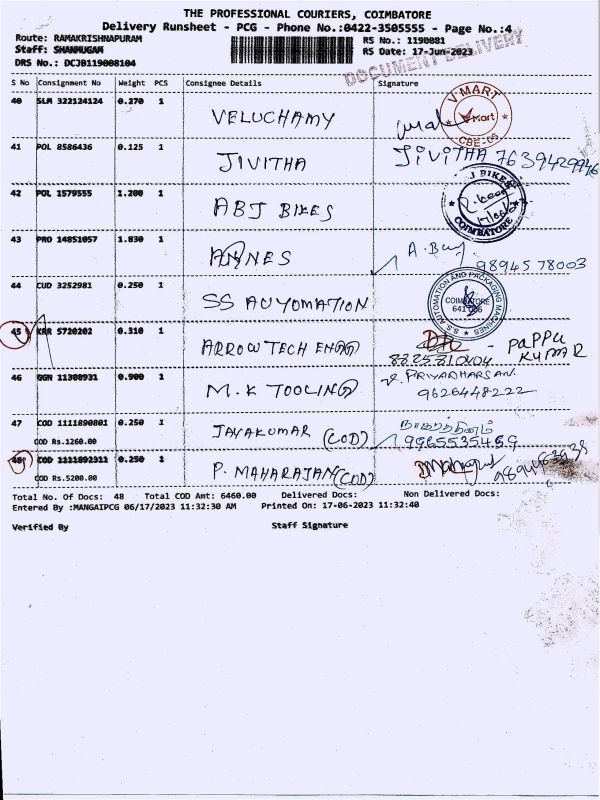 THE PROFESSIONAL COURIERS, COIMBATORE
Delivery Runsheet - PCG - Phone No.:0422-3505555 - Page No.:4
Route: RAMAKRISHNAPURAM
RS No.: 1190081
Staff: SHANMUGAM
RS Date: 17-Jun-2023
DRS No.: DCJB119008104
DOCUMENT DELIVERY
S No Consignment No Weight PCS Consignee Details Signature
40 SLM 322124124 0.270 1 VELUCHAMY
V MART
V Mart
CBE-06
41 POL 8586436 0.125 1 JIVITHA JIVITHA 7639429946
42 POL 1579555 1.200 1 ABJ BIKES
J BIKES
COIMBATORE
43 PRO 14851057 1.830 1 ANNES
9894578003
44 CUD 3252981 0.250 1 SS AUYOMATION
S.S. AUTOMATION AND PACKAGING MACHINES
COIMBATORE
641
45 KRR 5720202 0.310 1 ARROW TECH ENGG - PAPPU KUMAR
8825810404
46 GGN 11308931 0.900 1 M.K TOOLING PRIYADHARSAN
9626448222
47 COD 1111890801 0.250 1 JAYAKUMAR (COD)
COD Rs.1260.00
9965535469
48 COD 1111892311 0.250 1 P. MAHARAJAN (COD)
COD Rs.5200.00
Total No. Of Docs: 48 Total COD Amt: 6460.00 Delivered Docs: Non Delivered Docs:
Entered By :MANGAIPCG 06/17/2023 11:32:30 AM Printed On: 17-06-2023 11:32:40
Verified By Staff Signature